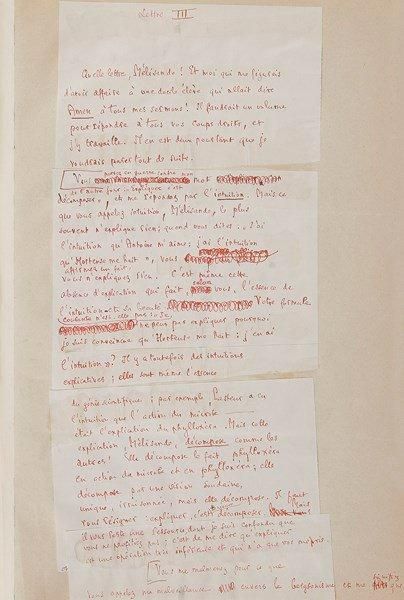 Lettre III
Quelle lettre, Mélisande ! Et moi qui me figurais
d'avoir affaire à une docile élève qui allait dire
Amen à tous mes sermons ! Il faudrait un volume
pour répondre à tous vos coups droits, et
j'y travaille. Il en est deux pourtant que je
voudrais parer tout de suite.
Vous partez en guerre contre mon mot
de l'autre jour : "expliquer c'est
décomposer", et me répondez par l'intuition. Mais ce
que vous appelez intuition, Mélisande, le plus
souvent n'explique rien ; quand vous dites : "j'ai
l'intuition qu'Antoine m'aime ; j'ai l'intuition
qu'Hortense me hait", vous
affirmez un fait,
vous n'expliquez rien. C'est même cette
absence d'explication qui fait, selon vous, l'essence de
l'intuition et sa beauté. Votre formule
constante n'est-elle pas : "Je
ne peux pas expliquer pourquoi
je suis convaincue qu'Hortense me hait : j'en ai
l'intuition" ? Il y a toutefois des intuitions
explicatives ; elles sont même l'essence
du génie scientifique : par exemple, Pasteur a eu
l'intuition que l'action du microbe
était l'explication du phylloxéra. Mais cette
explication, Mélisande, décompose comme les
autres ! Elle décompose le fait phylloxéra
en action du microbe et en phylloxéra ; elle
décompose par une vision soudaine,
unique, mais elle décompose. Il faut
vous résigner : expliquer, c'est décomposer. Mais
il vous reste une ressource dont je suis confondu que
vous ne profitiez pas : c'est de me dire qu'expliquer
est une opération très inférieure et qui n'a que vos mépris.
Vous me malmenez pour ce que
vous appelez ma malveillance envers le bergsonisme et me